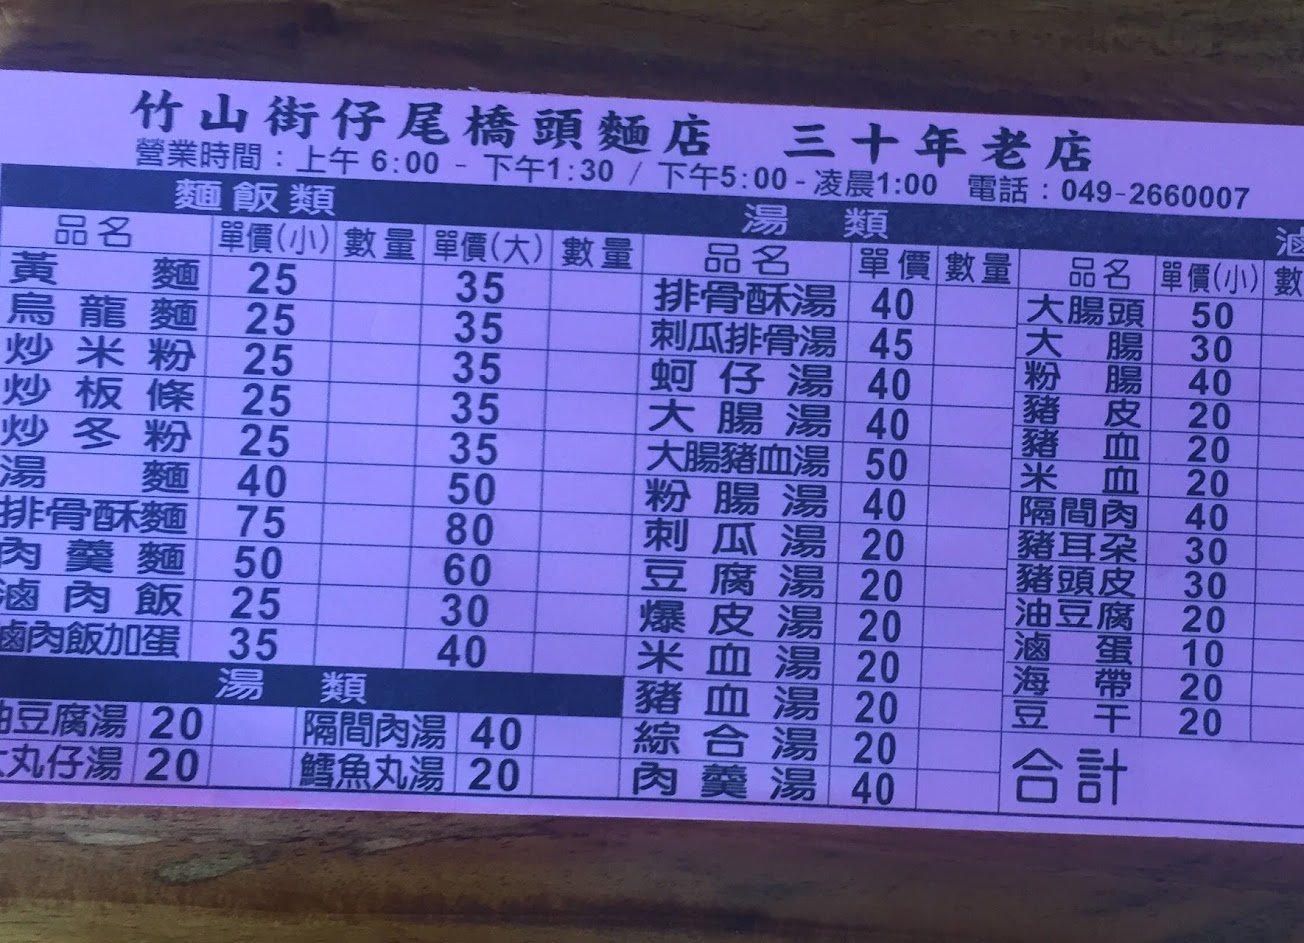 竹山街仔尾橋頭麵店 三十年老店
營業時間：上午 6:00 - 下午1:30 / 下午5:00-凌晨1:00 電話：049-2660007
麵飯類
品名 單價(小) 數量 單價(大) 數量
黃麵 25 35
烏龍麵 25 35
炒米粉 25 35
炒板條 25 35
炒冬粉 25 35
湯麵 40 50
排骨酥麵 75 80
肉羹麵 50 60
滷肉飯 25 30
滷肉飯加蛋 35 40
湯類
油豆腐湯 20 隔間肉湯 40
丸仔湯 20 鱈魚丸湯 20
湯類
品名 單價 數量
排骨酥湯 40
刺瓜排骨湯 45
蚵仔湯 40
大腸湯 40
大腸豬血湯 50
粉腸湯 40
刺瓜湯 20
豆腐湯 20
爆皮湯 20
米血湯 20
豬血湯 20
綜合湯 20
肉羹湯 40
滷
品名 單價(小) 數
大腸頭 50
大腸 30
粉腸 40
豬皮 20
豬血 20
米血 20
隔間肉 40
豬耳朵 30
豬頭皮 30
油豆腐 20
滷蛋 10
海帶 20
豆干 20
合計